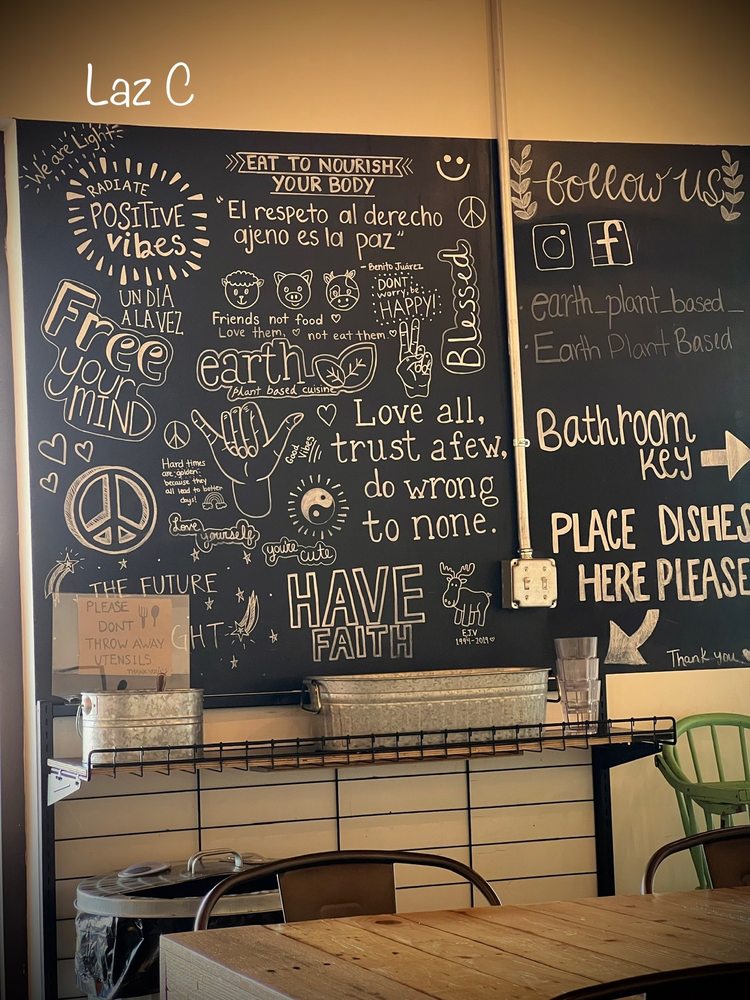 Laz C
We are Light
RADIATE
POSITIVE
vibes
EAT TO NOURISH
YOUR BODY
"El respeto al derecho
ajeno es la paz"
- Benito Juárez
UN DIA
A LA VEZ
Free
your
MIND
Friends not food
Love them, not eat them.
DONT
worry, be
HAPPY!
Blessed
earth
plant based cuisine
Hard times
are golden
because they
all lead to better
days!
Good Vibes
Love all,
trust a few,
do wrong
to none.
Love yourself
you're cute
THE FUTURE
GHT
HAVE
FAITH
E.I.V
1994-2019
PLEASE
DONT
THROW AWAY
UTENSILS
THANK YOU
follow us
f
earth_plant_based_
· Earth Plant Based
Bathroom
Key
PLACE DISHES
HERE PLEASE
Thank you